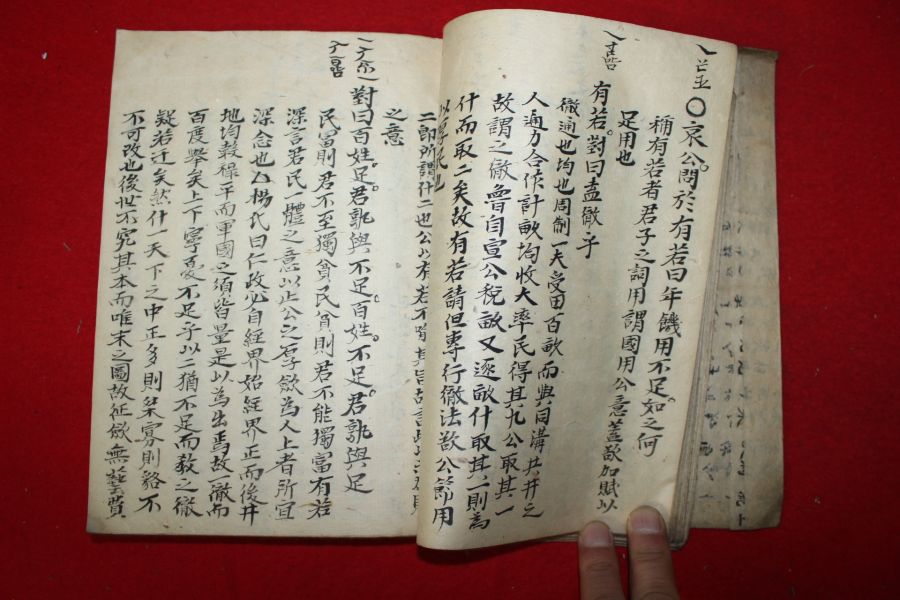 ○哀公問於有若曰年饑用不足如之何
稱有若者君子之詞用謂國用公意盖欲加賦以
足用也
有若對曰盍徹乎
徹通也均也周制一夫受田百畝而與同溝共井之
人通力合作計畝均收大率民得其九公取其一
故謂之徹魯自宣公稅畝又逐畝什取其一則為
什而取二矣故有若請但專行徹法欲公節用
以厚民也
二即所謂什二也公以有若不
之意
對曰百姓足君孰與不足百姓不足君孰與足
民富則君不至獨貧民貧則君不能獨富有若
深言君民一體之意以止公之厚歛為人上者所宜
深念也○楊氏曰仁政必自經界始經界正而後井
地均穀祿平而軍國之須皆量是以為出焉故一徹而
百度舉矣上下寧憂不足乎以二猶不足而教之徹
疑若迂矣然什一天下之中正多則桀寡則貉不
不可改也後世不究其本而唯末之圖故征歛無藝費